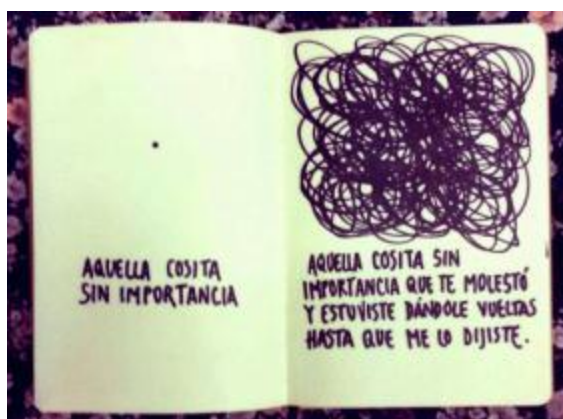 AQUELLA COSITA
SIN IMPORTANCIA
AQUELLA COSITA SIN
IMPORTANCIA QUE TE MOLESTÓ
Y ESTUVISTE DÁNDOLE VUELTAS
HASTA QUE ME LO DIJISTE.